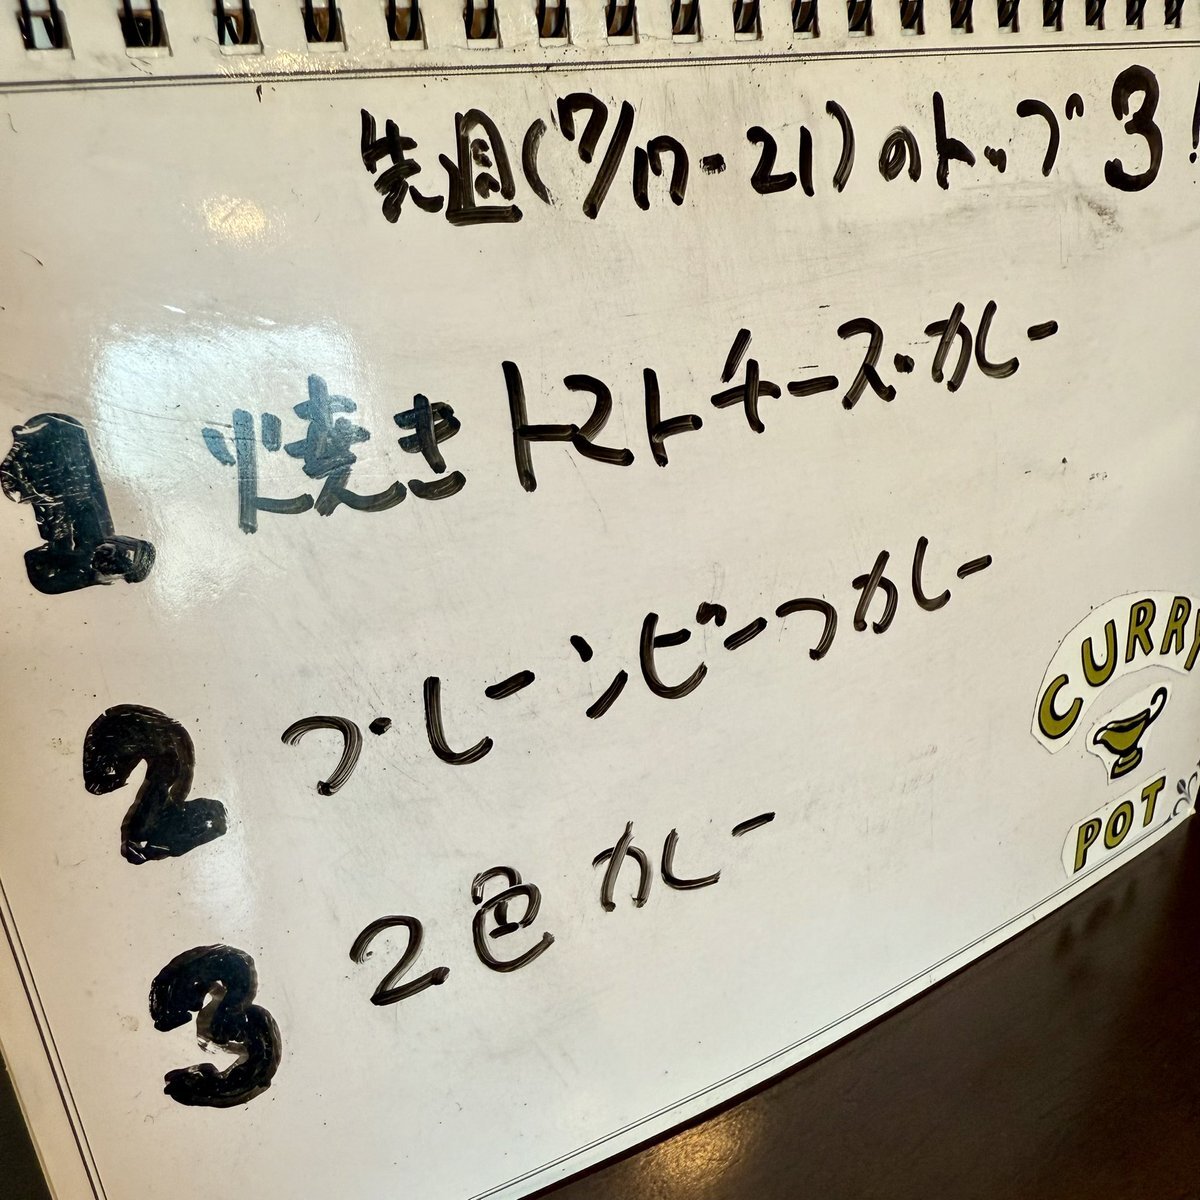 先週(7/17-21)のトップ3!
1 焼きトマトチーズ・カレー
2 プレーンビーフカレー
3 2色カレー
CURRY
POT